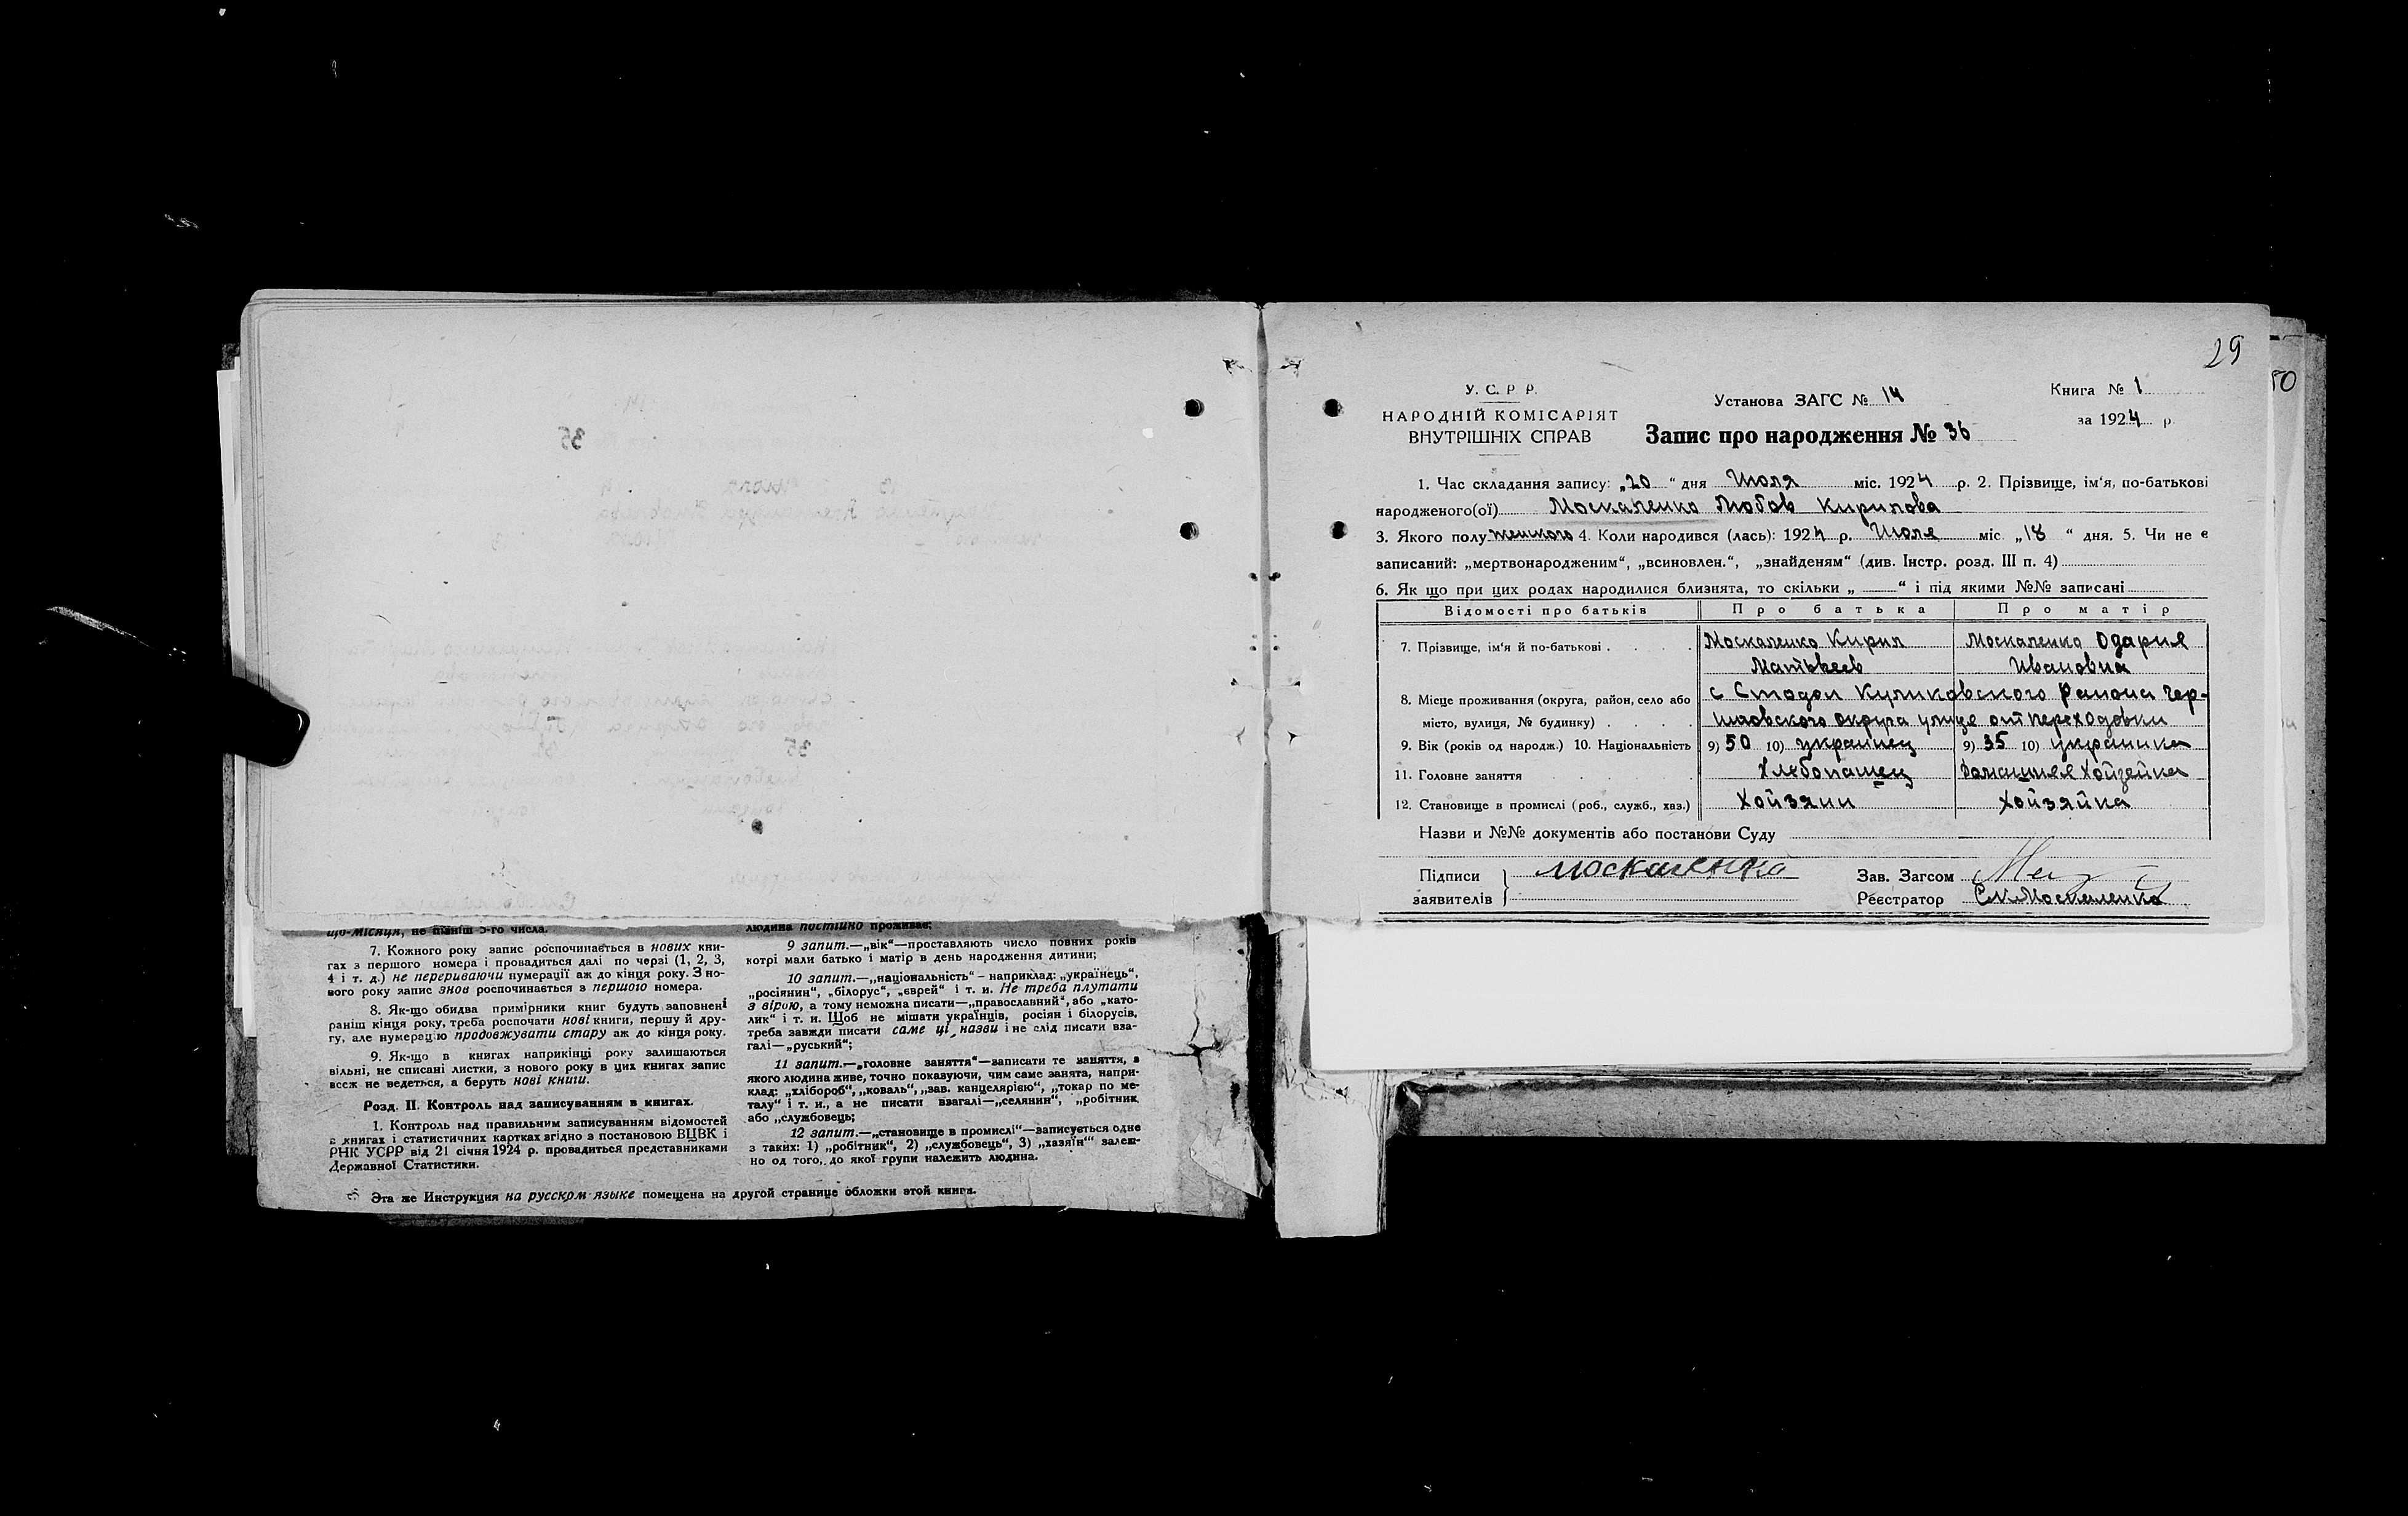 що-місяця, не пізніш 5-го числа.
7. Кожного року запис роспочинається в нових кни-
гах з першого номера і провадиться далі по черзі (1, 2, 3,
4 і т. д.) не перериваючи нумерації аж до кінця року. З но-
вого року запис знов роспочинається з першого номера.
8. Як-що обидва примірники книг будуть заповнені
раніш кінця року, треба роспочати нові книги, першу й дру-
гу, але нумерацію продовжувати стару аж до кінця року.
9. Як-що в книгах наприкінці року залишаються
вільні, не списані листки, з нового року в цих книгах запис
всеж не ведеться, а беруть нові книги.
Розд. II. Контроль над записуванням в книгах.
1. Контроль над правильним записуванням відомостей
в книгах і статистичних картках згідно з постановою ВЦВК і
РНК УСРР від 21 січня 1924 р. провадиться представниками
Державної Статистики.
людина постійно проживає;
9 запит.—„вік“—проставляють число повних років
котрі мали батько і матір в день народження дитини;
10 запит.—„національність“ – наприклад: „українець“,
„росіянин“, „білорус“, „єврей“ і т. и. Не треба плутати
з вірою, а тому неможна писати—„православний“, або „като-
лик“ і т. и. Щоб не мішати українців, росіян і білорусів,
треба завжди писати саме ці назви і не слід писати вза-
галі—„руський“;
11 запит.—„головне заняття“—записати те заняття, з
якого людина живе, точно показуючи, чим саме занята, напри-
клад: „хлібороб“, „коваль“, „зав. канцелярією“, „токар по ме-
талу“ і т. и., а не писати взагалі—„селянин“, „робітник
або „службовець;
12 запит.—„становище в промислі“—записується одне
з таких: 1) „робітник“, 2) „службовець“, 3) „хазяїн“ залеж-
но од того, до якої групи належить людина.
Эта же Инструкция на русском языке помещена на другой странице обложки этой книги.
29
50
У. С. Р Р.
НАРОДНІЙ КОМІСАРІЯТ
ВНУТРІШНІХ СПРАВ
Установа ЗАГС № 14
Запис про народження № 36
Книга № 1
за 1924 р.
1. Час складання запису: „20“ дня Июля міс. 1924 р. 2. Прізвище, ім‘я, по-батькові
народженого(ої) Москаленко Любов Кирилова
3. Якого полу женского 4. Коли народився (лась): 1924 р. Июля міс. „18“ дня. 5. Чи не є
записаний: „мертвонародженим“, „всиновлен.“, „знайденям“ (див. Інстр. розд. III п. 4)
6. Як що при цих родах народилися близнята, то скільки „ — “ і під якими №№ записані
Відомості про батьків Про батька Про матір
7. Прізвище, ім‘я й по-батькові Москаленко Кирил Москаленко Одария
Матвеев Ивановна
8. Місце проживання (округа, район, село або с Стодол Куликовского Района Чер-
місто, вулиця, № будинку) ниговского округа улице от переходовки
9. Вік (років од народж.) 10. Національність 9) 50 10) украинец 9) 35 10) украинка
11. Головне заняття Хлебопашец Домашняя Хойзейка
12. Становище в промислі (роб., служб., хаз.) Хойзяин Хойзяйка
Назви и №№ документів або постанови Суду
Підписи заявителів Москаленко
Зав. Загсом
Реєстратор Москаленко